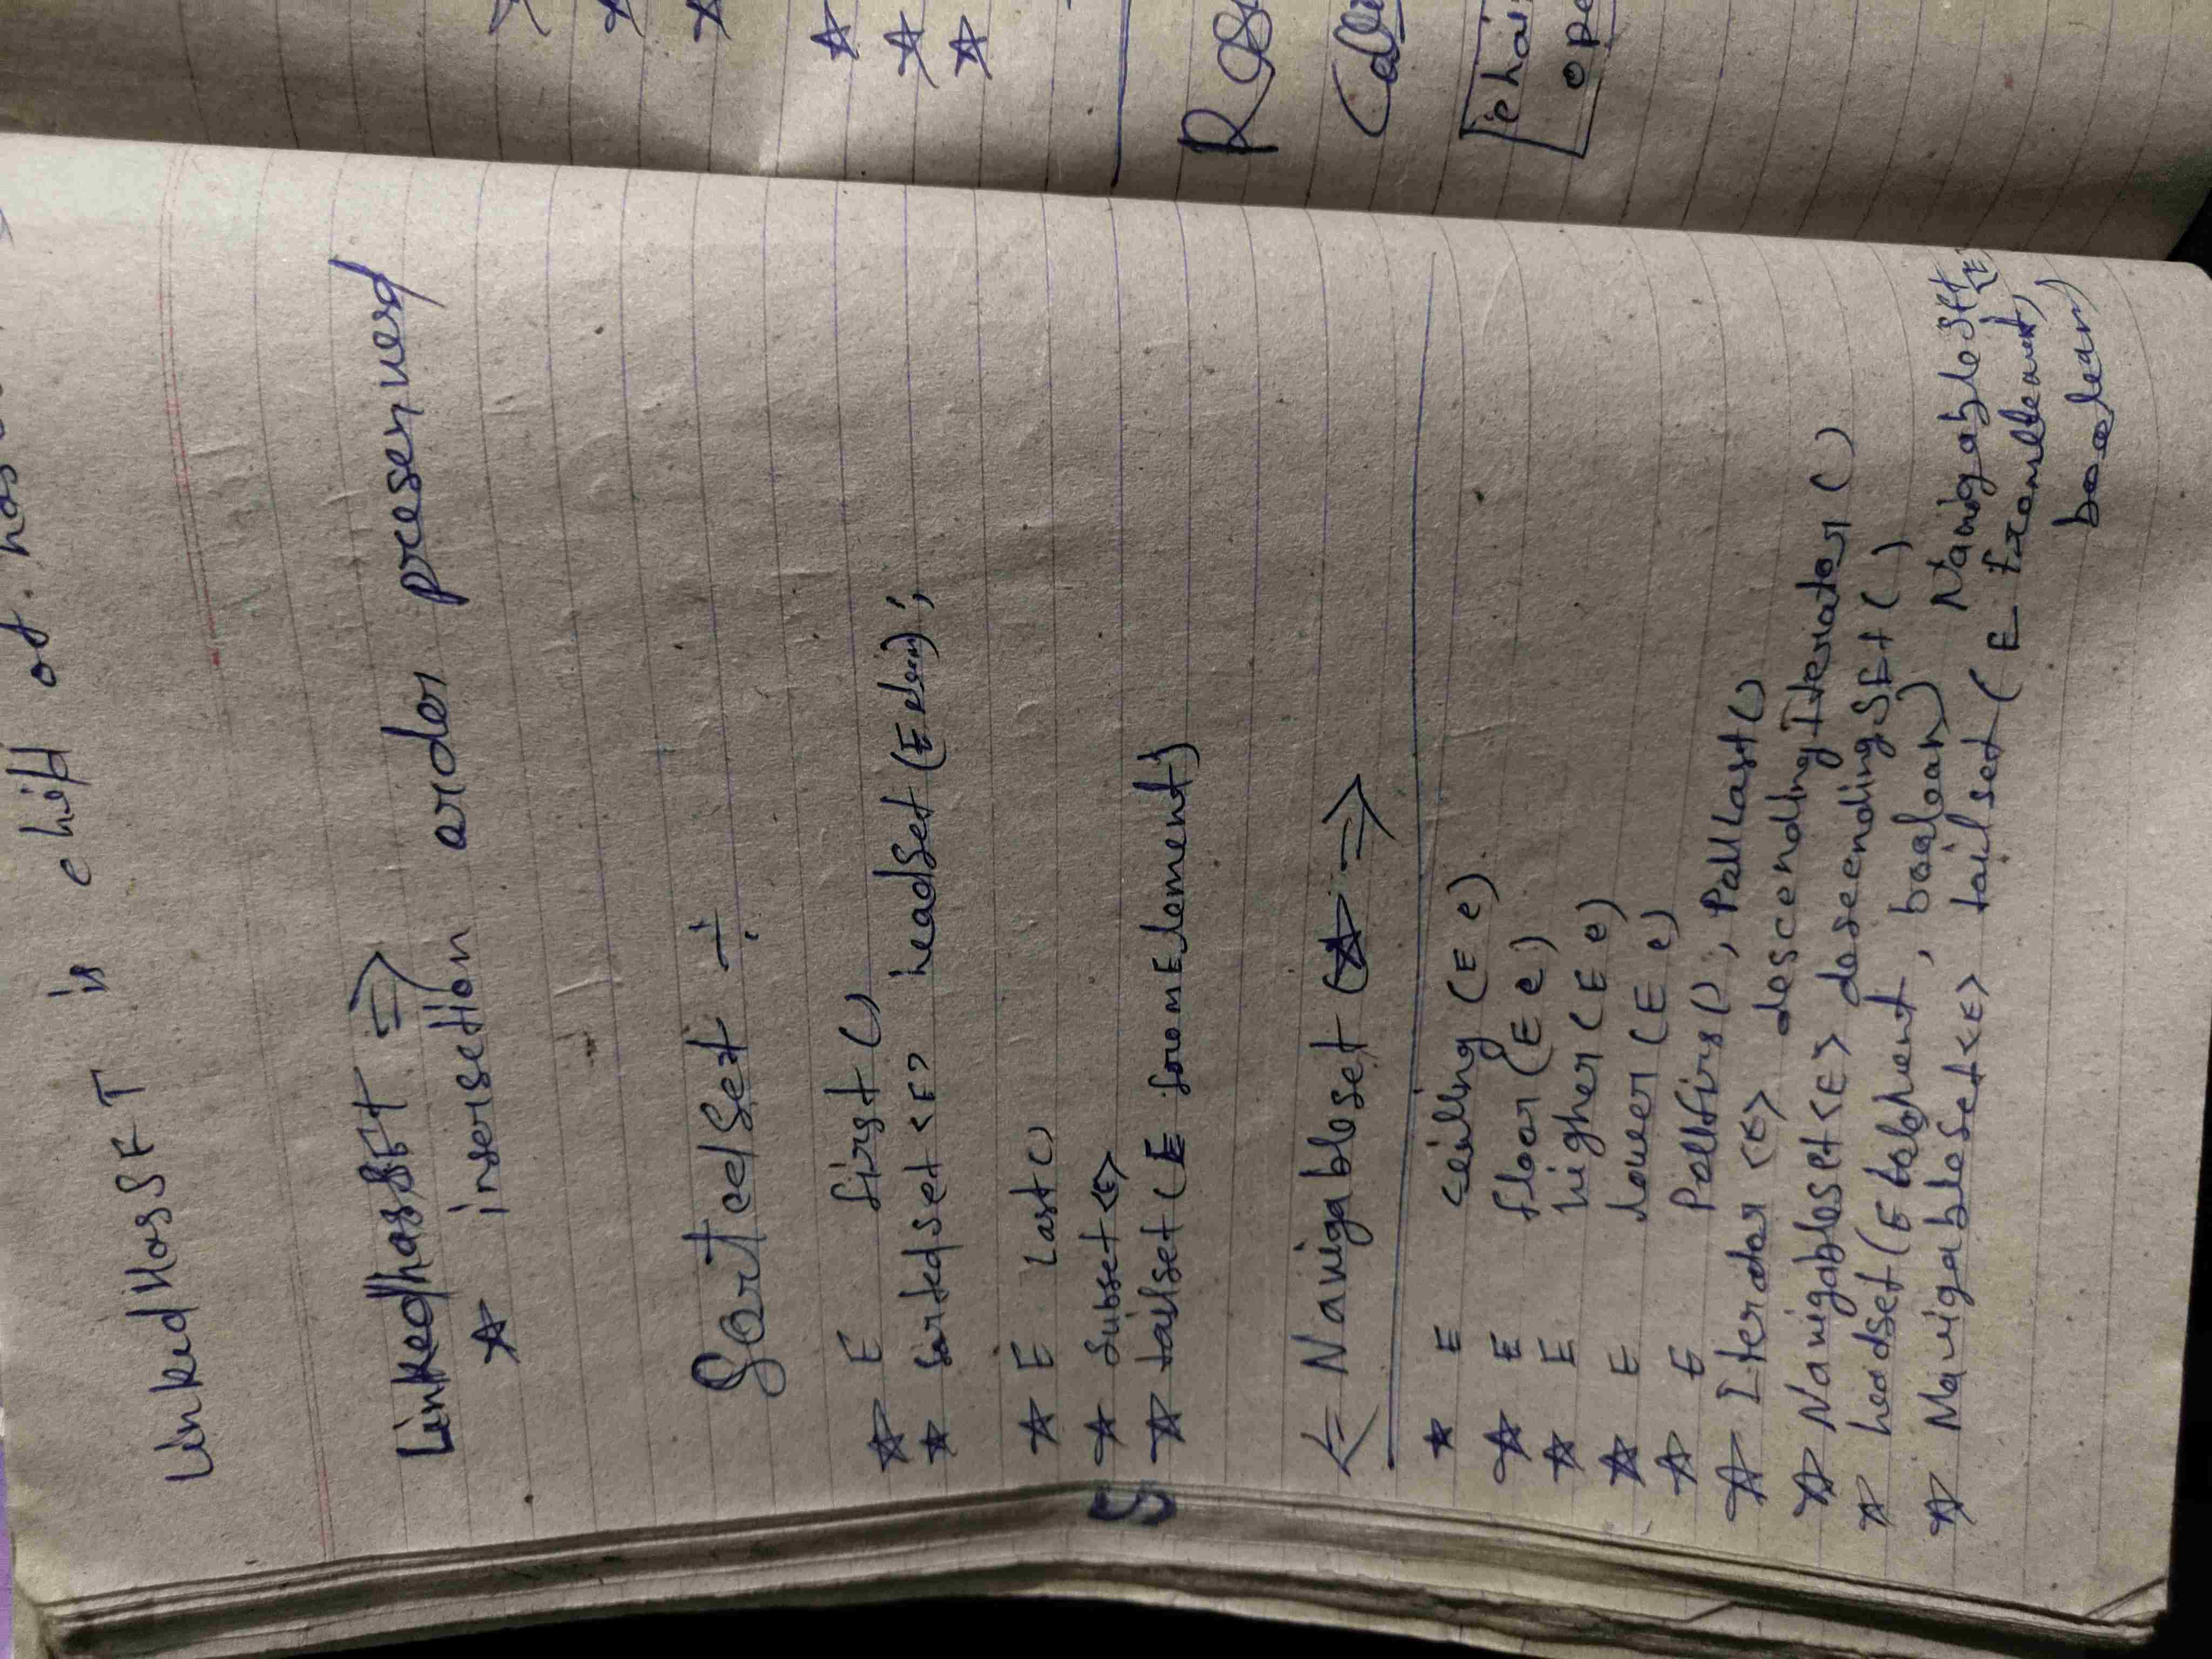 LinkedHasSET is child of has
LinkedhasSEt ⇒
☆ insersction order presenverd
SortedSet ÷
☆ E first()
☆ SortedSet <E> headSet (E elem);
☆ E Last()
☆ Subset <E>
☆ tailset (E fromElement)
⇐ Navigableset ☆ ⇒
☆ E ceiling (E e).
☆ E floor (E e)
☆ E higher (E e)
☆ E lower (E e)
☆ E Pollfirs(), PollLast()
☆ Iterator <E> descendingIterator ()
☆ Navigableset <E> descendingSEt ( )
☆ headset (E , boolean) NavigableSet <E
☆ Navigableset <E> tailset ( E fromElement,
boolean)
☆
☆
☆
☆
☆
☆
Ros
Coll
chai
ope